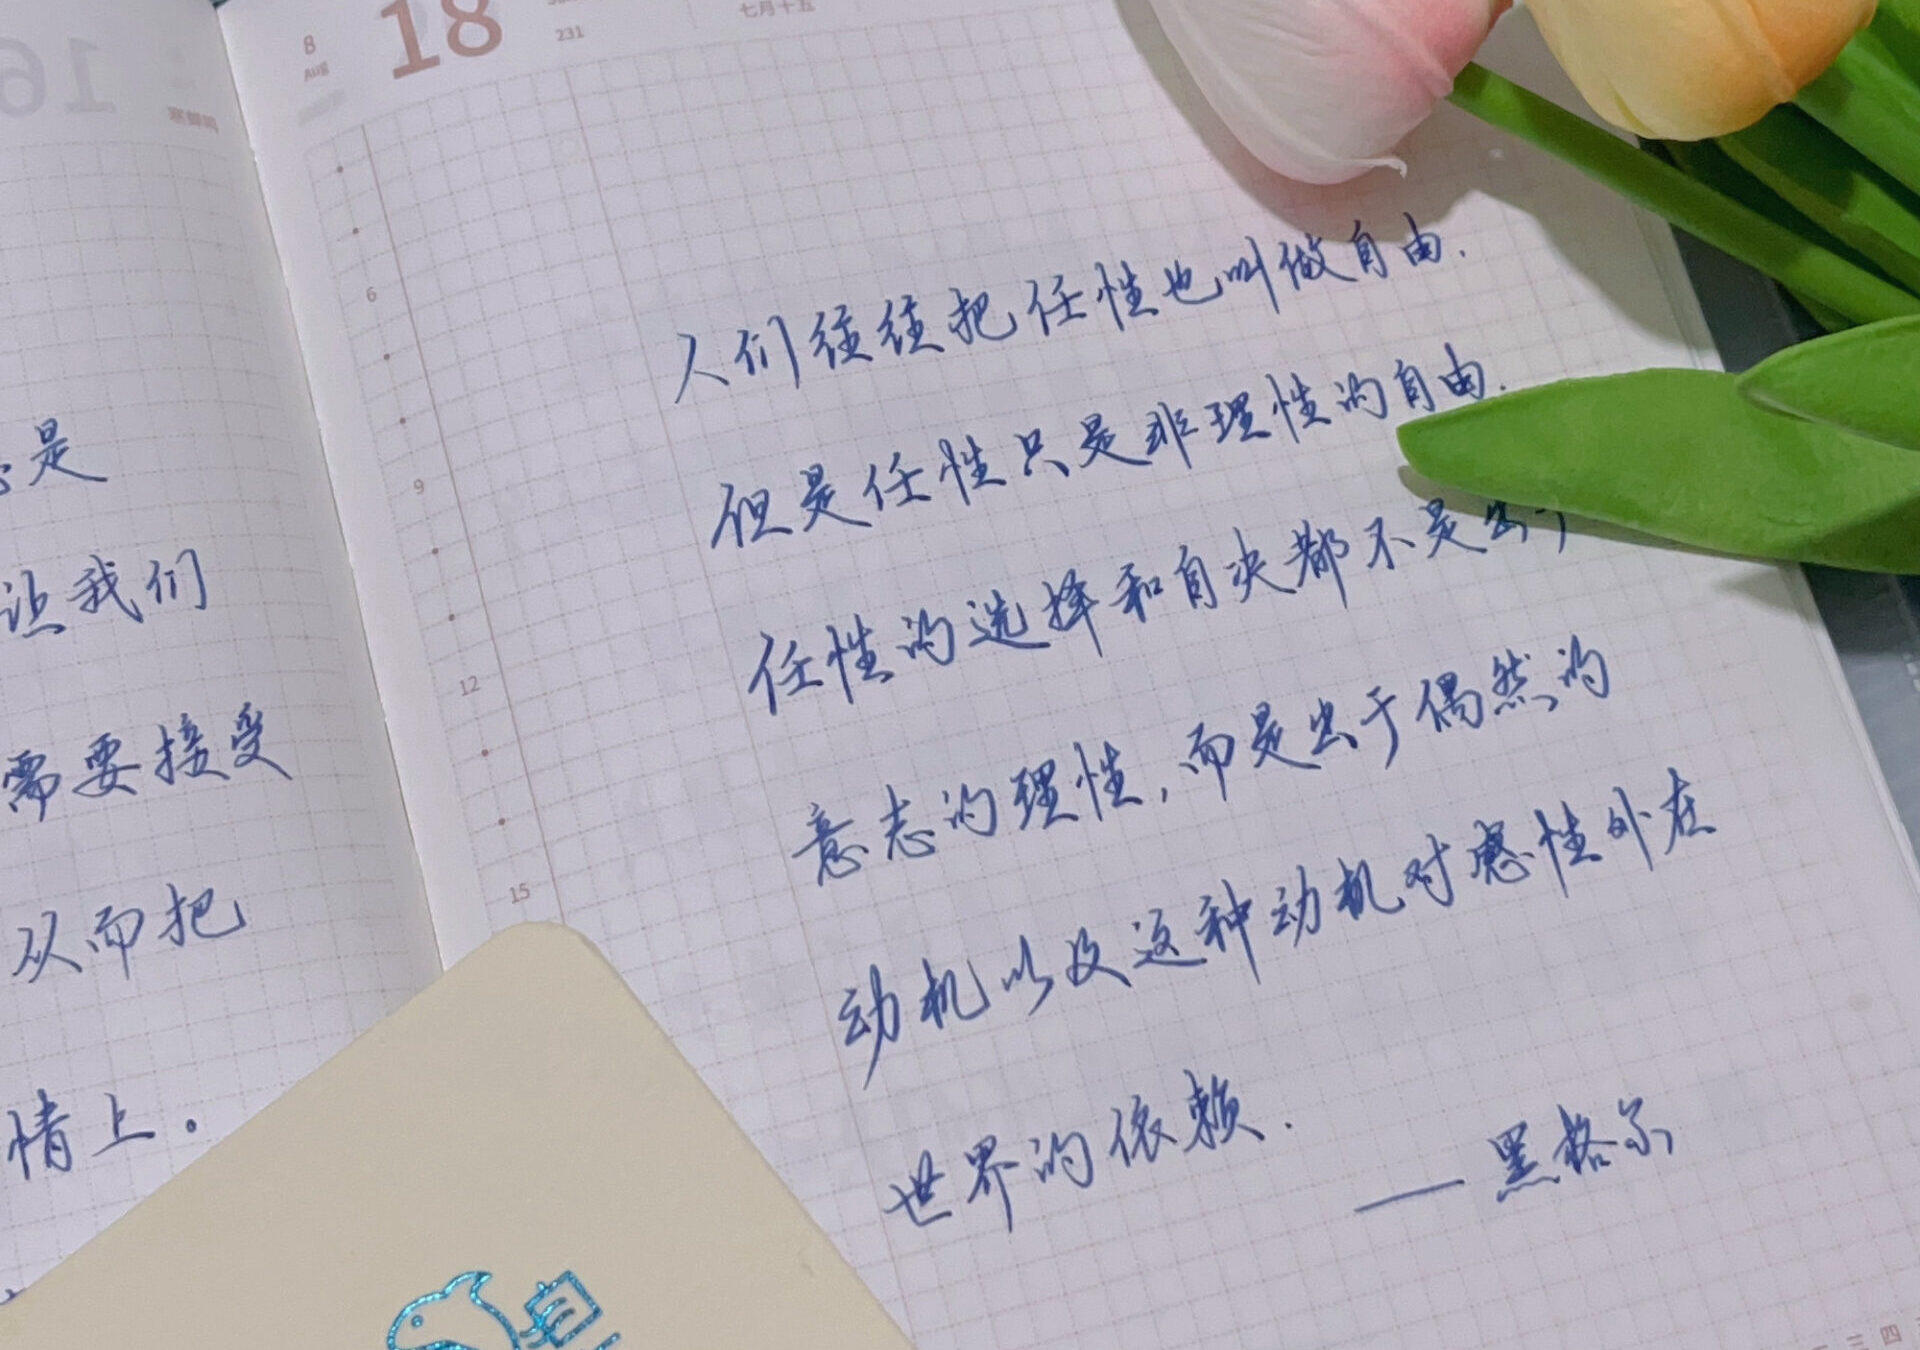 8
AUG
18
231
七月十五
16
寒蝉鸣
6
9
12
15
是
让我们
需要接受
从而把
情上.
人们往往把任性也叫做自由.
但是任性只是非理性的自由.
任性的选择和自决都不是出于
意志的理性,而是出于偶然的
动机以及这种动机对感性外在
世界的依赖.
——黑格尔
三 四